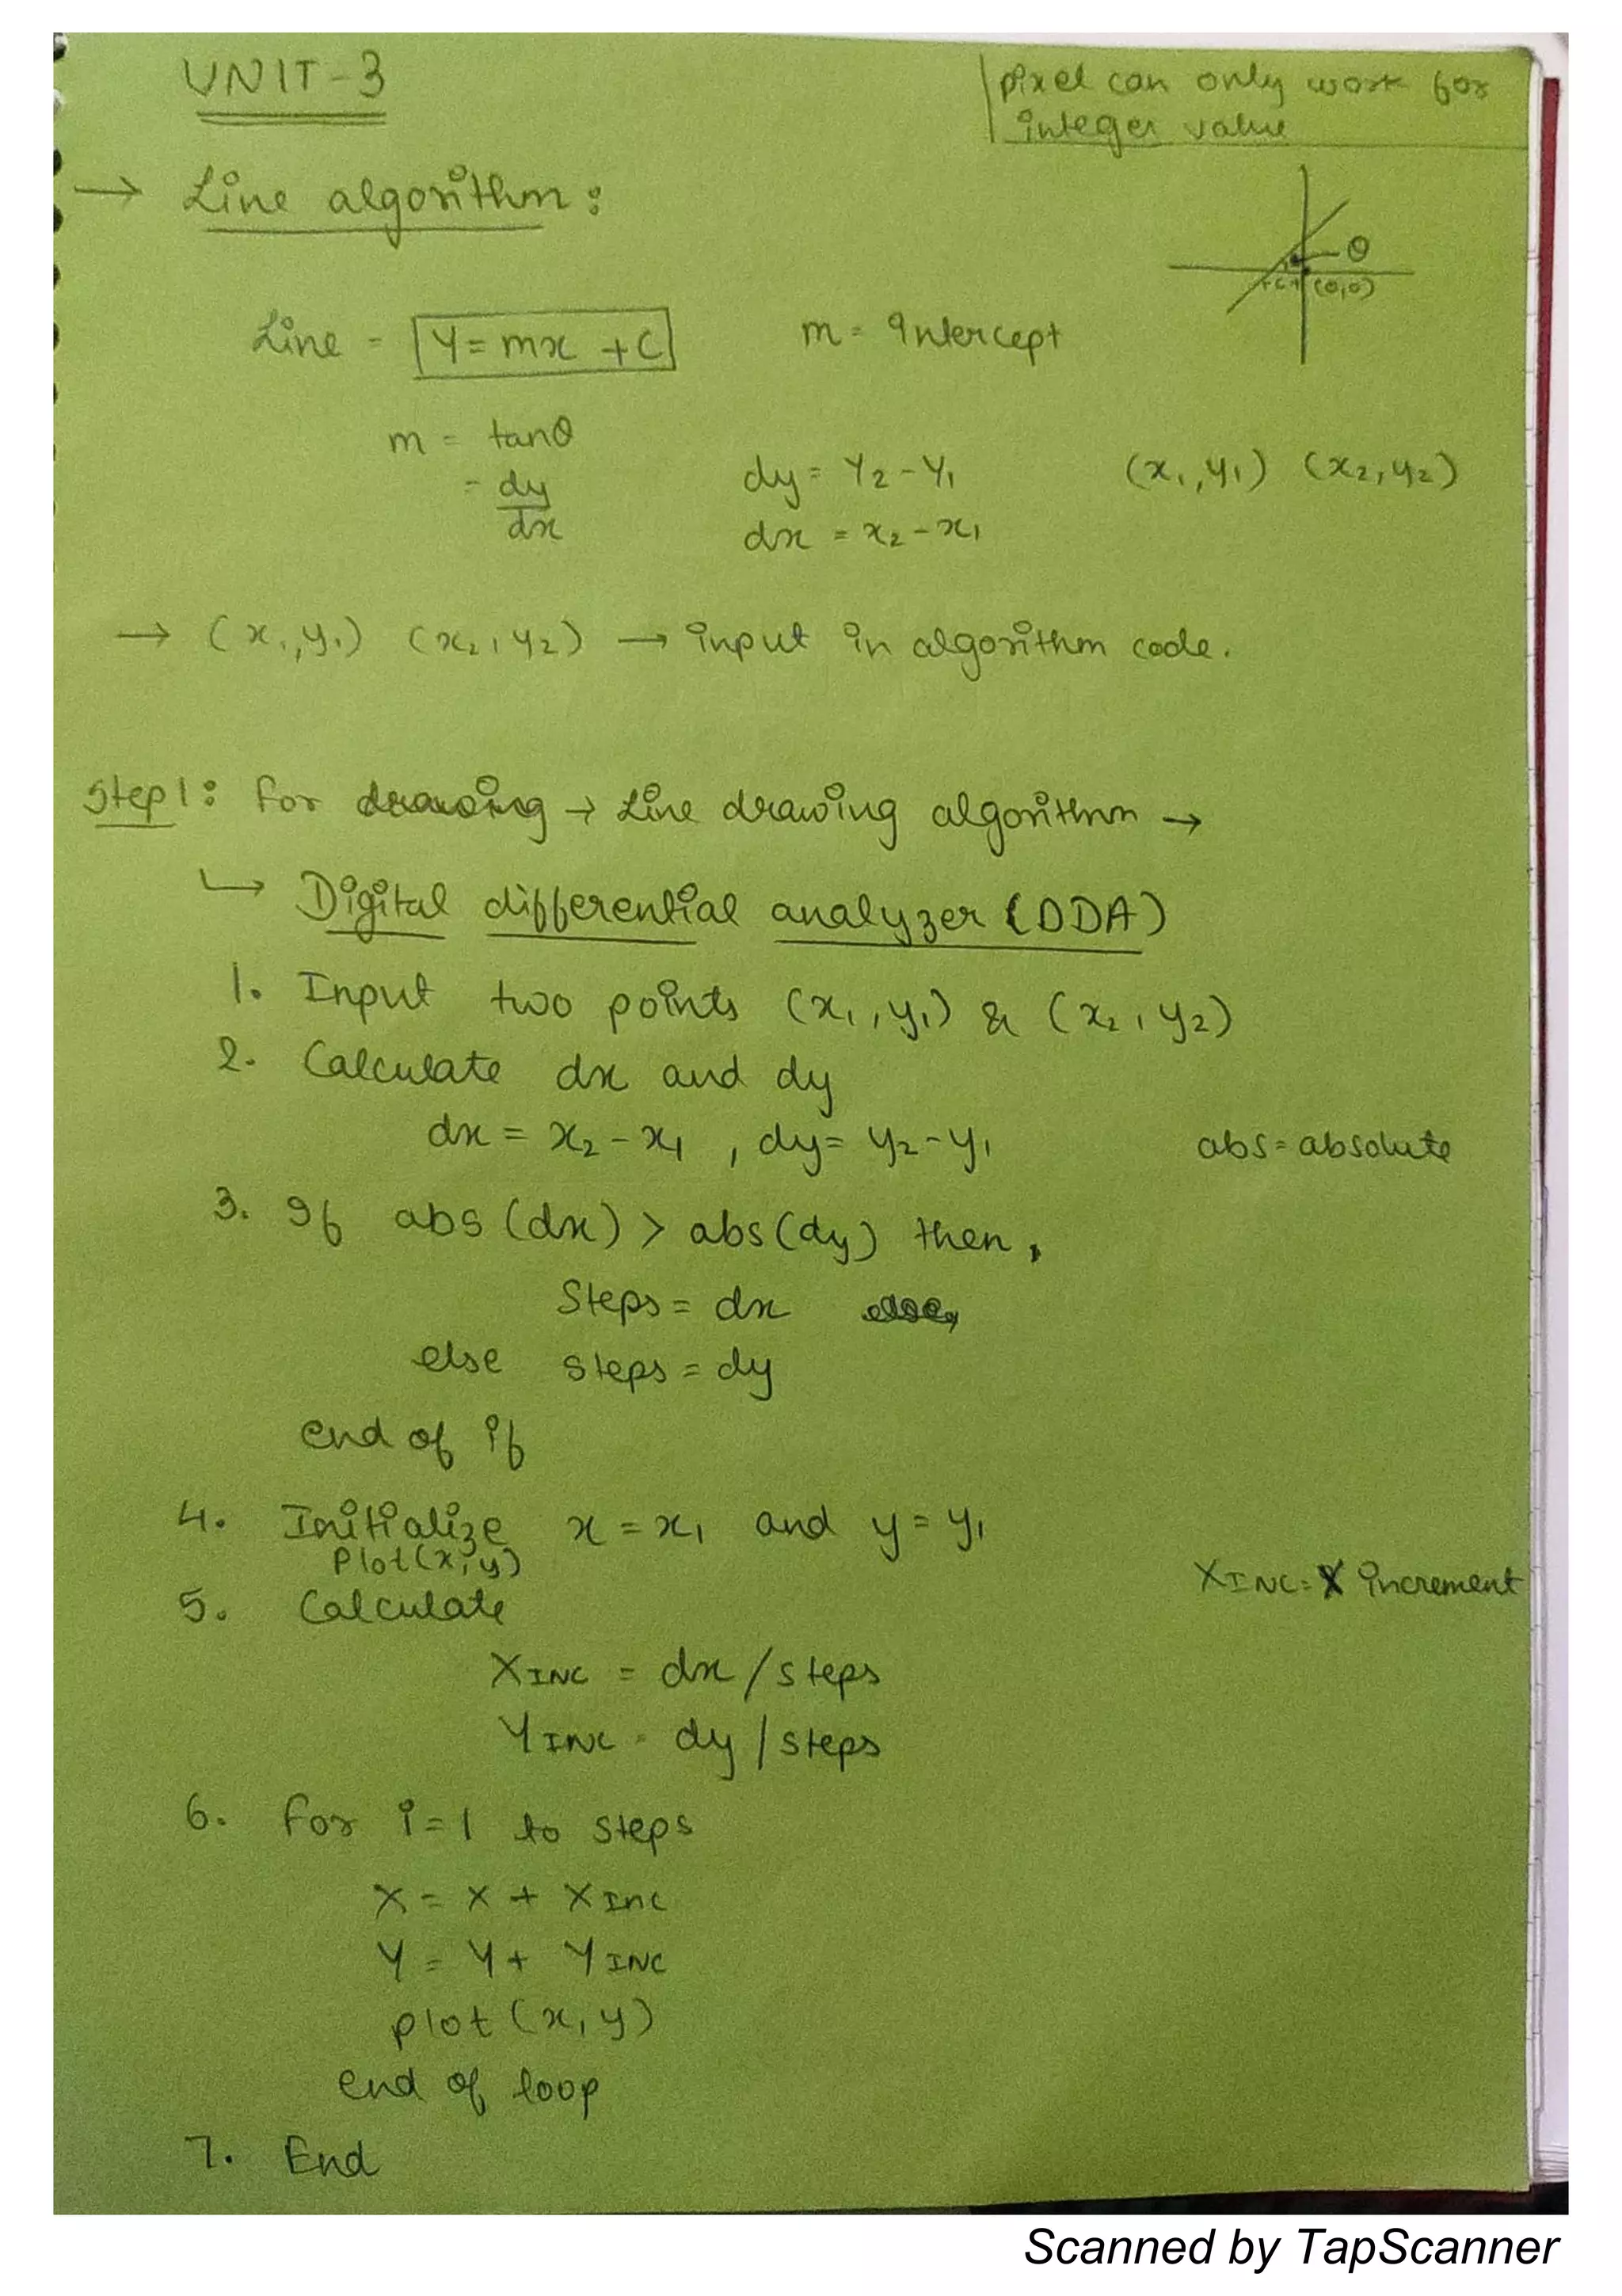 UNIT-3
pixel can only work for
integer value
→ Line algorithm:
θ
(0,0)
Line = Y = mx + C
m = Intercept
m = tanθ
= dy
dx
dy = Y2 - Y1
dx = x2 - x1
(x1, y1) (x2, y2)
→ (x1, y1) (x2, y2) → input in algorithm code.
Step 1: For drawing → Line drawing algorithm →
↳ Digital differential analyzer (DDA)
1. Input two points (x1, y1) & (x2, y2)
2. Calculate dx and dy
dx = x2 - x1 , dy = y2 - y1
abs = absolute
3. If abs (dx) > abs (dy) then,
Steps = dx
else steps = dy
end of if
4. Initialize x = x1 and y = y1
Plot(x, y)
XINC = X increment
5. Calculate
XINC = dx / steps
YINC = dy / steps
6. For i = 1 to steps
X = X + XInc
Y = Y + YINC
plot (x, y)
end of loop
7. End
Scanned by TapScanner